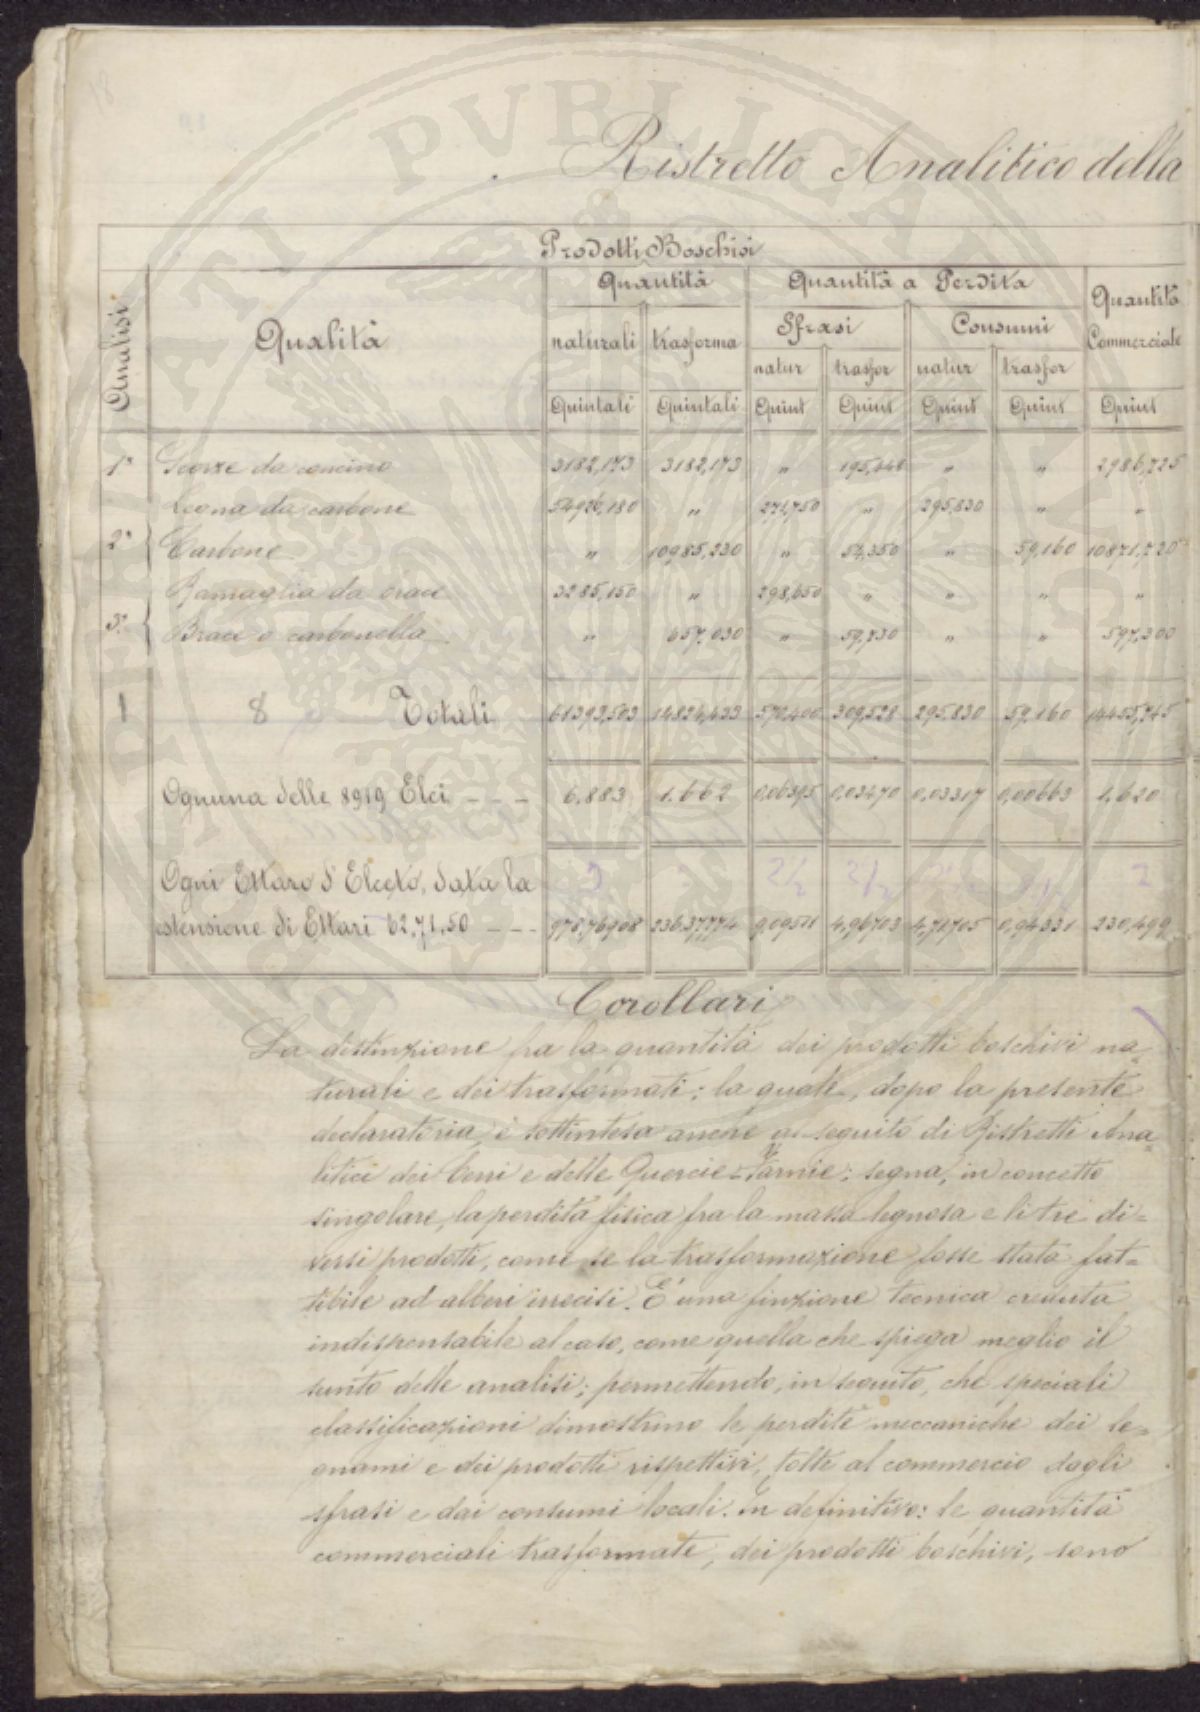 18
Ristretto Analitico della
Prodotti Boschivi
Analisi
Qualità
Quantità
Quantità a Perdita
Quantità Commerciate
naturali trasforma
Sfrasi
Consumi
natur trasfor natur trasfor
Quintali Quintali Quint Quint Quint Quint Quint
1ª Scorze da concino 3182,173 3182,173 " 195,448 " " 2986,725
Legna da carbone 54926,180 " 271,750 " 295,830 " "
2ª Carbone " 10985,230 " 54,350 " 59,160 10871,720
Ramaglia da brace 3285,150 " 298,650 " " " "
3ª Brace o carbonella " 657,030 " 59,730 " " 597,300
1 8 Totali 61393,503 14824,433 570,400 309,528 295,830 59,160 14455,745
Ognuna delle 8919 Elci - - - 6,883 1.662 0,06395 0,03470 0,03317 0,00663 1,620
Ogni Ettaro d'Elceto, data la
estensione di Ettari 62,71,50 - - - 978,76908 236,37774 9,09511 4,96703 4,71705 0,94331 230,499
Corollari
La distinzione fra la quantità dei prodotti boschivi na=
turali e dei trasformati; la quale, dopo la presente
declaratoria, è sottintesa anche al seguito di Ristretti Ana=
litici dei Cerri e delle Quercie-Farnie; segna, in concetto
singolare, la perdita fisica fra la massa legnosa e li tre di=
versi prodotti, come se la trasformazione fosse stata fat=
tibile ad alberi irrecisi. È una finzione tecnica creduta
indispensabile al caso, come quella che spiega meglio il
sunto delle analisi; permettendo, in seguito, che speciali
classificazioni dimostrino le perdite meccaniche dei le=
gnami e dei prodotti rispettivi, tolte al commercio dagli
sfrasi e dai consumi locali. In definitivo: le quantità
commerciali trasformate, dei prodotti boschivi, sono